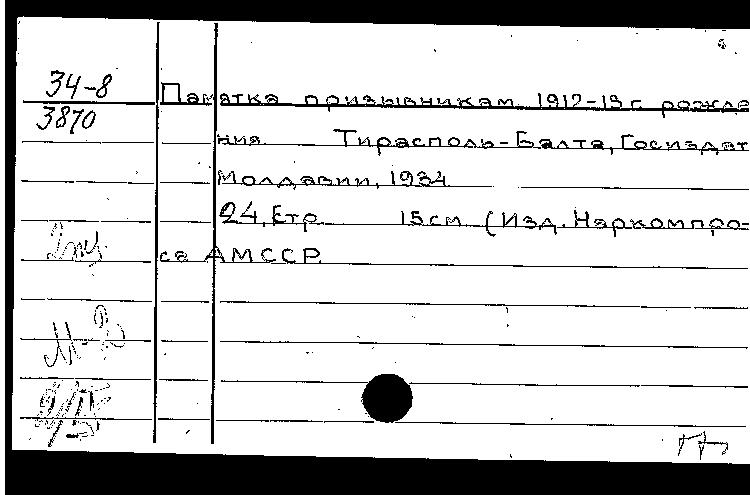 34-8
3870
Памятка призывникам 1912-13 г. рожде
ния. Тирасполь-Балта, Госиздат
Молдавии, 1934
24 стр. 15 см (Изд. Наркомпро-
са АМССР.